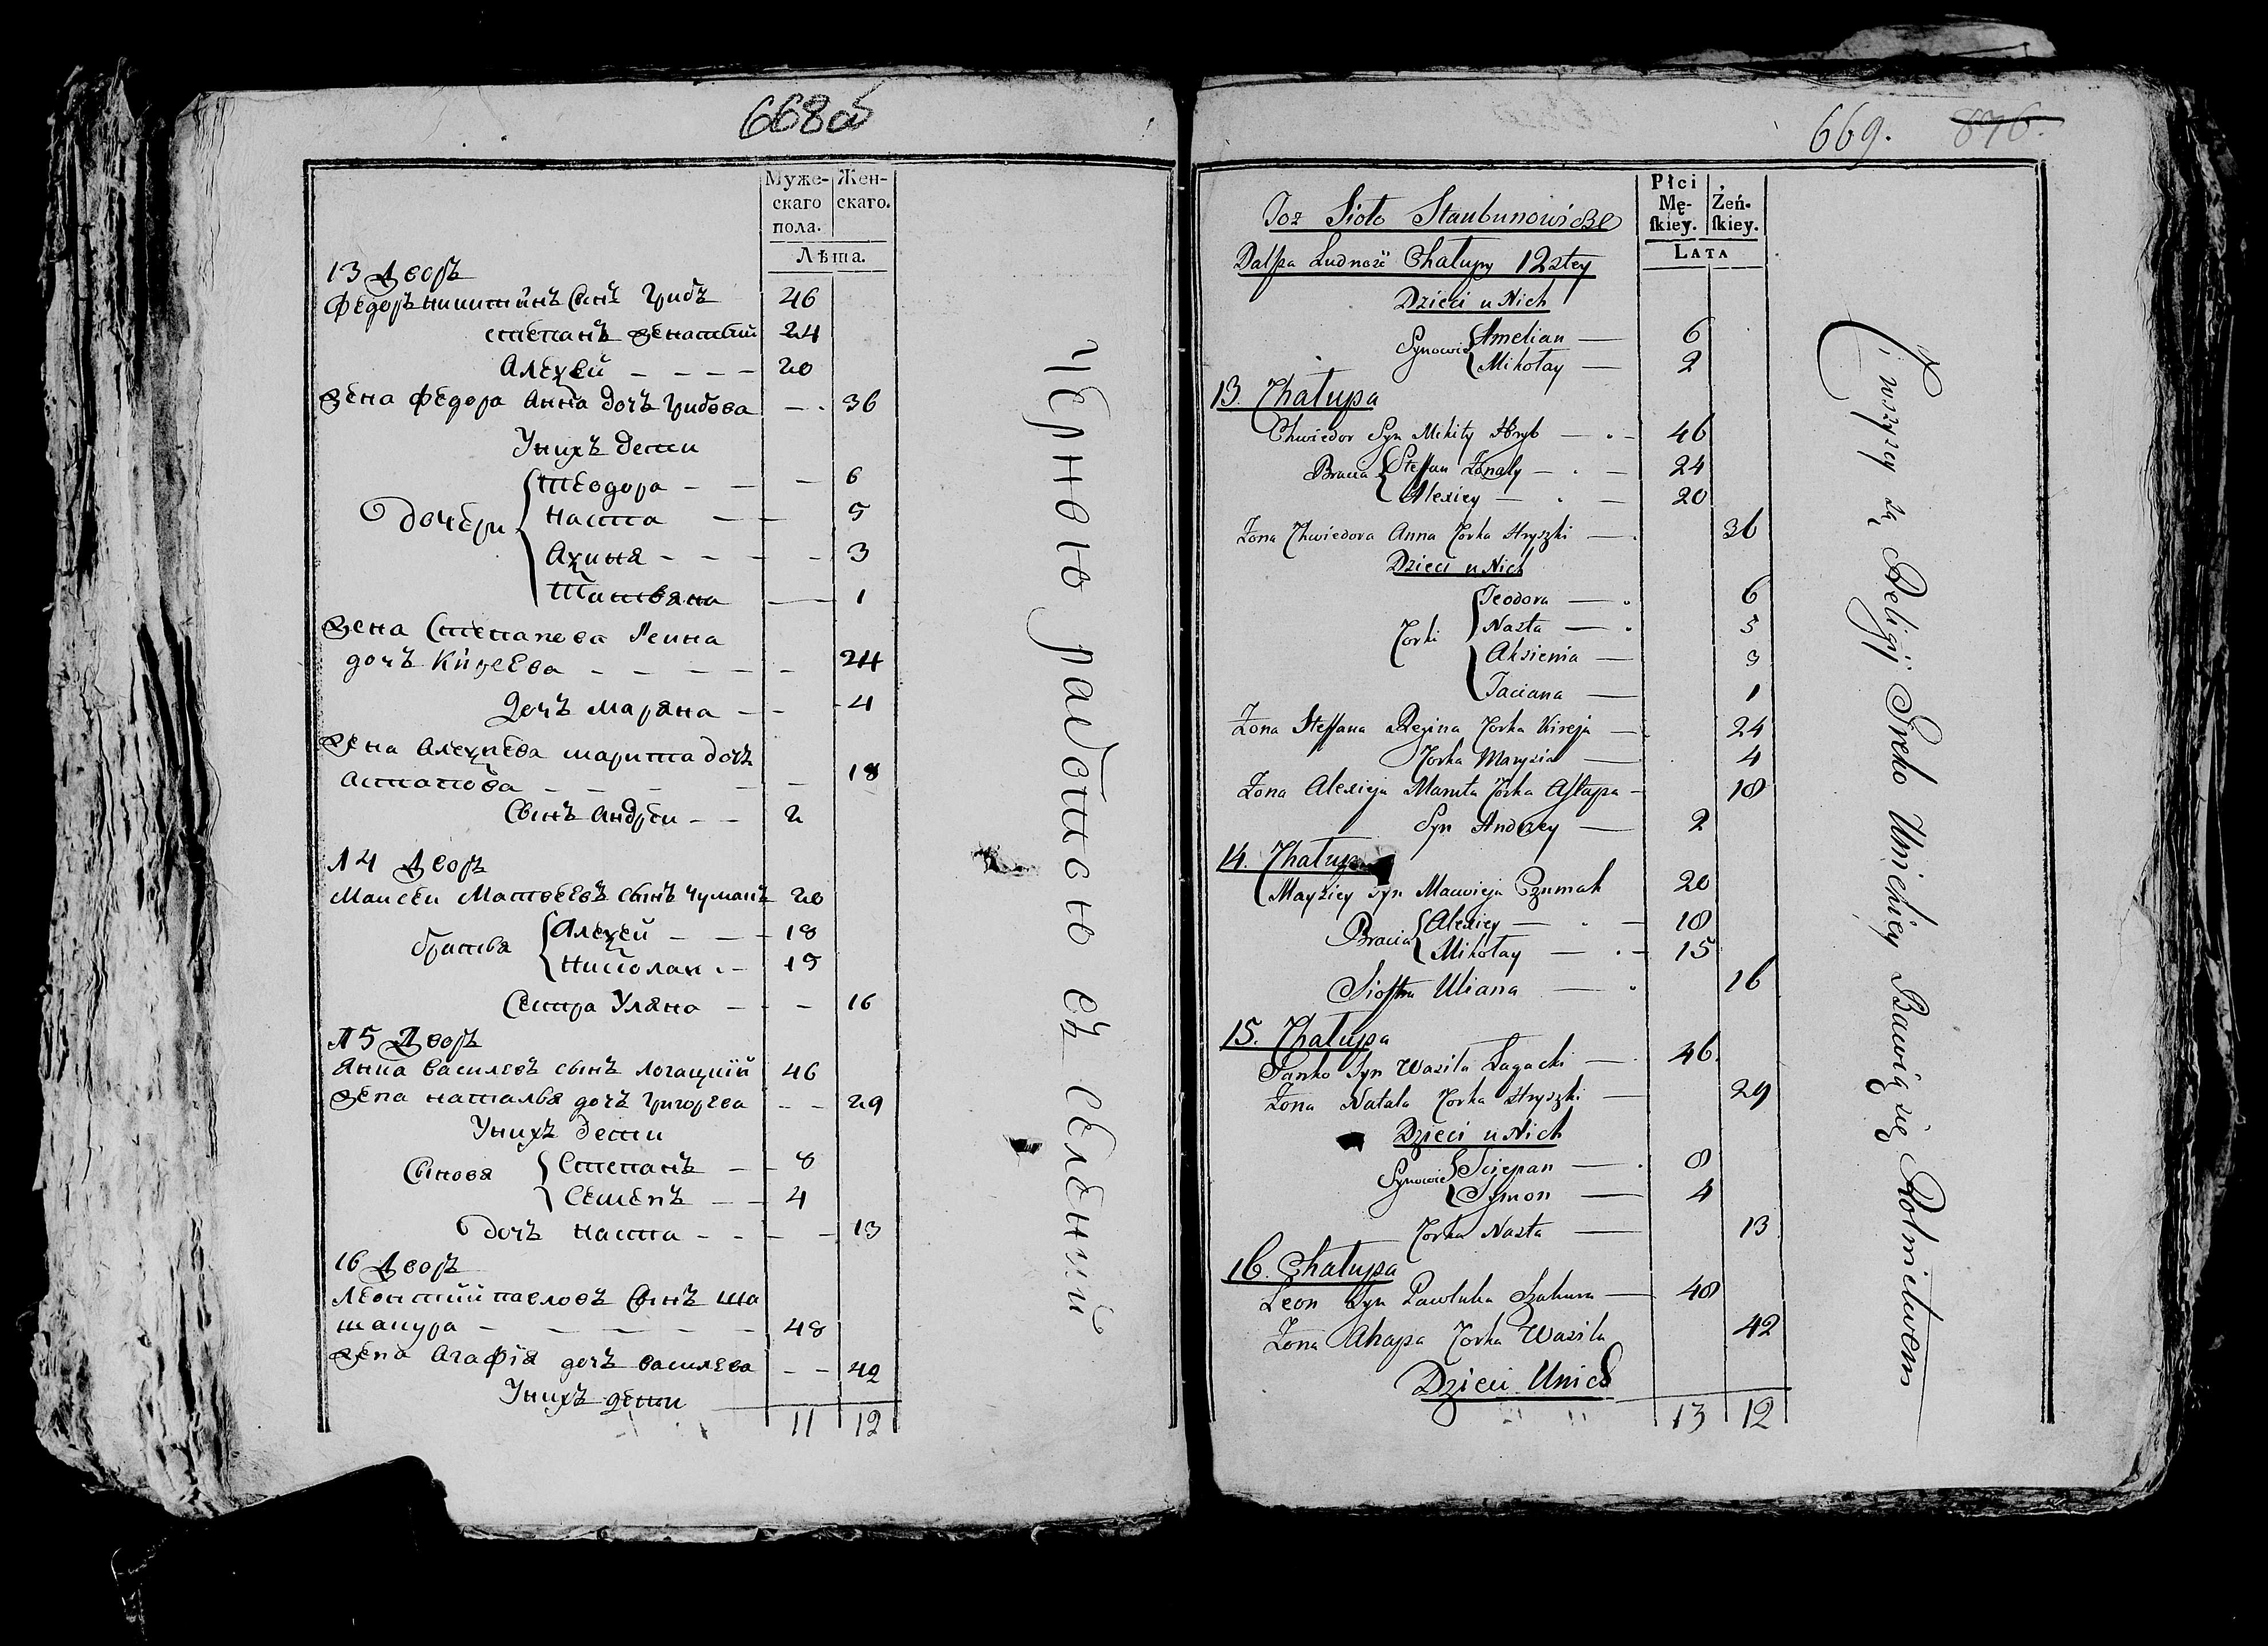 668об
Муже-
скаго
пола.
Жен-
скаго.
Лѣта.
13 Дворъ
Федоръ Никитинъ Сынъ Грибъ 46
Степанъ Зенатый 24
Алехѣй - - - - 20
Зена Федора Анна дочъ Грибова - - 36
Унихъ дети
дочери
Теодора - - - 6
Наста - - 5
Ахиня - - - - 3
Татьяна - - 1
Зена Степанова Реина
дочъ Кирѣева - - - - - 24
Дочъ Маряна - - - 4
Зена Алехѣева Марита дочъ
Астапова - - - - - 18
Сынъ Андрѣи - - 2
14 Дворъ
Маисеи Матвеевъ сынъ Чумакъ 20
братья
Алехѣй - - - 18
Николаи - - 15
Сестра Уляна - - - 16
15 Дворъ
Янка Василевъ сынъ Логацкій 46
Зена Наталья дочъ Григорева - - 29
Унихъ дети
Сыновя
Степанъ - - 8
Семенъ - - 4
Дочъ Наста - - - - 13
16 Дворъ
Леонтий Павловъ Сынъ Ша
шакура - - - - - 48
Зена Агафія дочъ Василева - - 42
Унихъ дети
11 12
чернью работаю съ селений
669. 876.
Płci
Mę-
ſkiey.
Żeń-
ſkiey.
LATA
Toż Sioło Staubunowicze
Dalſza Ludność Chałupy 12stey
Dzieci u Nich
Synowie
Amelian — 6
Mikołay — 2
13. Chałupa
Chwiedor Syn Mikity Hryb — - 46
Bracia
Steffan Żonaty — - — 24
Alexiey — - — 20
Żona Chwiedora Anna Córka Hryszki — - 36
Dzieci u Nich
Córki
Teodora — - 6
Nasta — - 5
Aksienia — 3
Taciana — 1
Żona Steffana Regina Córka Kireja — 24
Córka Marysia — 4
Żona Alexieja Maruta Córka Aſtapa - 18
Syn Andrzey — 2
14. Chałupa
Mayziey Syn Macwieja Czumak 20
Bracia
Alexiey — - — 18
Mikołay — - - 15
Sioſtra Uliana — - 16
15. Chałupa
Janko Syn Wasila Łagacki — 46.
Żona Natala Córka Hryszki — 29
Dzieci u Nich
Synowie
Sciepan — - 8
Symon — 4
Córka Nasta — 13
16. Chałupa
Leon Syn Pawluka Szakura — 48
Żona Ahapa Córka Wasila 42
Dzieci Unich
13 12
Ci wszyscy są Religij Greko Unickiey Bawią się Rolnictwem